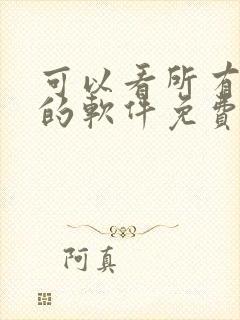 可以看所有
的軟件免費
阿真